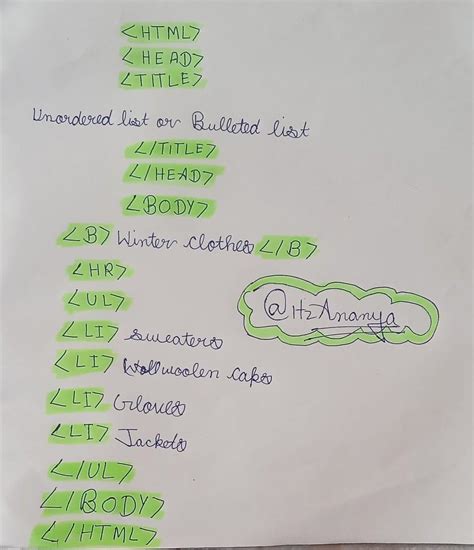 <HTML>
<HEAD>
<TITLE>
Unordered list or Bulleted list
</TITLE>
</HEAD>
<BODY>
<B> Winter clothes </B>
<HR>
<UL>
@itzAnanya
<LI> Sweaters
<LI> woolen caps
<LI> Gloves
<LI> Jackets
</UL>
</BODY>
</HTML>